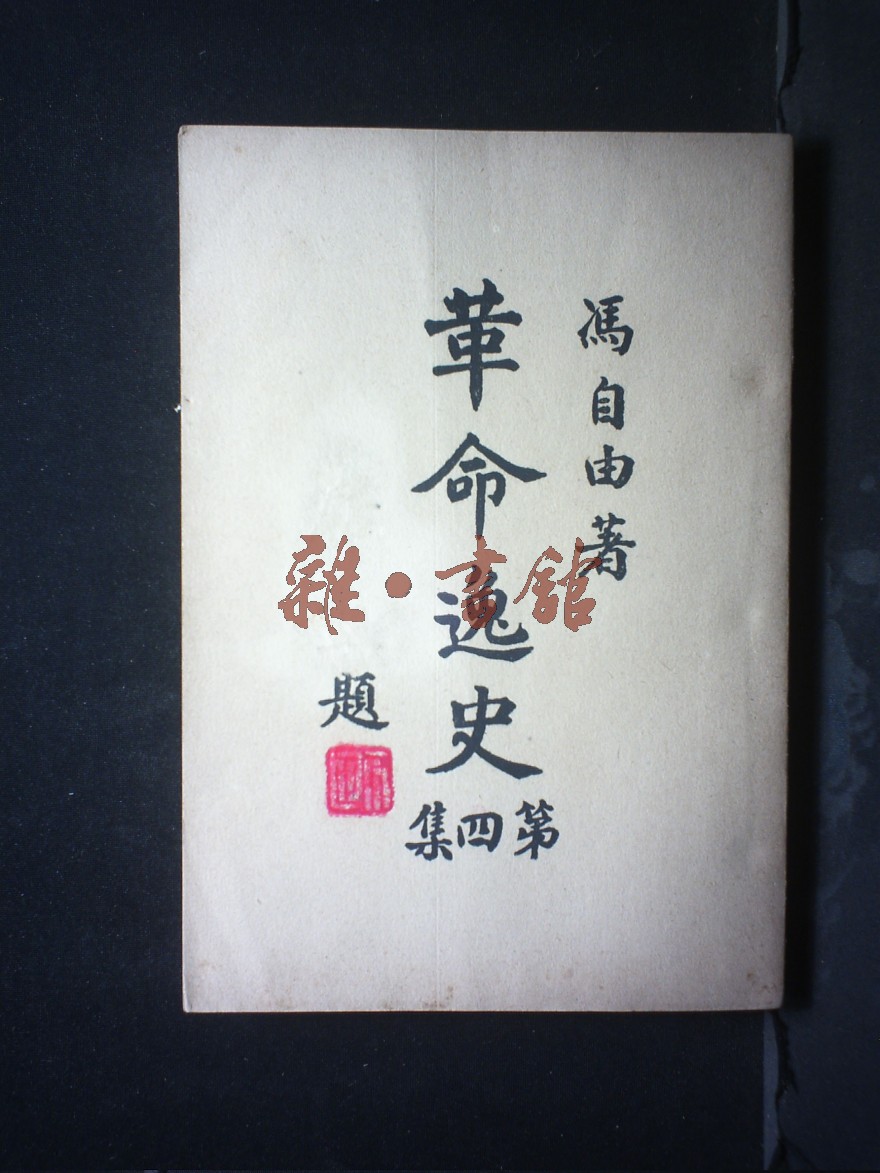 馮自由著
革命逸史
第四集
題
雜·書館